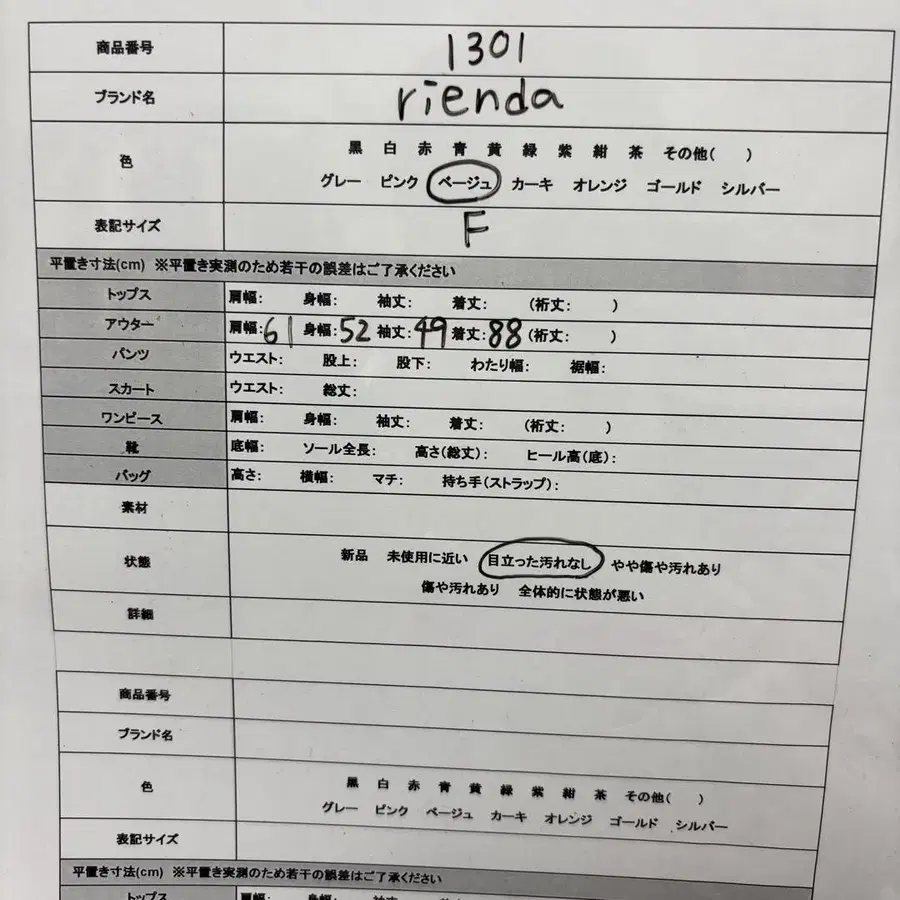 商品番号 1301
ブランド名 rienda
色 黒 白 赤 青 黄 緑 紫 紺 茶 その他( )
グレー ピンク ベージュ カーキ オレンジ ゴールド シルバー
表記サイズ F
平置き寸法(cm) ※平置き実測のため若干の誤差はご了承ください
トップス 肩幅: 身幅: 袖丈: 着丈: (裄丈: )
アウター 肩幅:61 身幅:52 袖丈:49 着丈:88 (裄丈: )
パンツ ウエスト: 股上: 股下: わたり幅: 裾幅:
スカート ウエスト: 総丈:
ワンピース 肩幅: 身幅: 袖丈: 着丈: (裄丈: )
靴 底幅: ソール全長: 高さ(総丈): ヒール高(底):
バッグ 高さ: 横幅: マチ: 持ち手(ストラップ):
素材
状態 新品 未使用に近い 目立った汚れなし やや傷や汚れあり
傷や汚れあり 全体的に状態が悪い
詳細
商品番号
ブランド名
色 黒 白 赤 青 黄 緑 紫 紺 茶 その他( )
グレー ピンク ベージュ カーキ オレンジ ゴールド シルバー
表記サイズ
平置き寸法(cm) ※平置き実測のため若干の誤差はご了承ください
トップス 肩幅: 身幅: 袖丈: 着丈: (裄丈: )